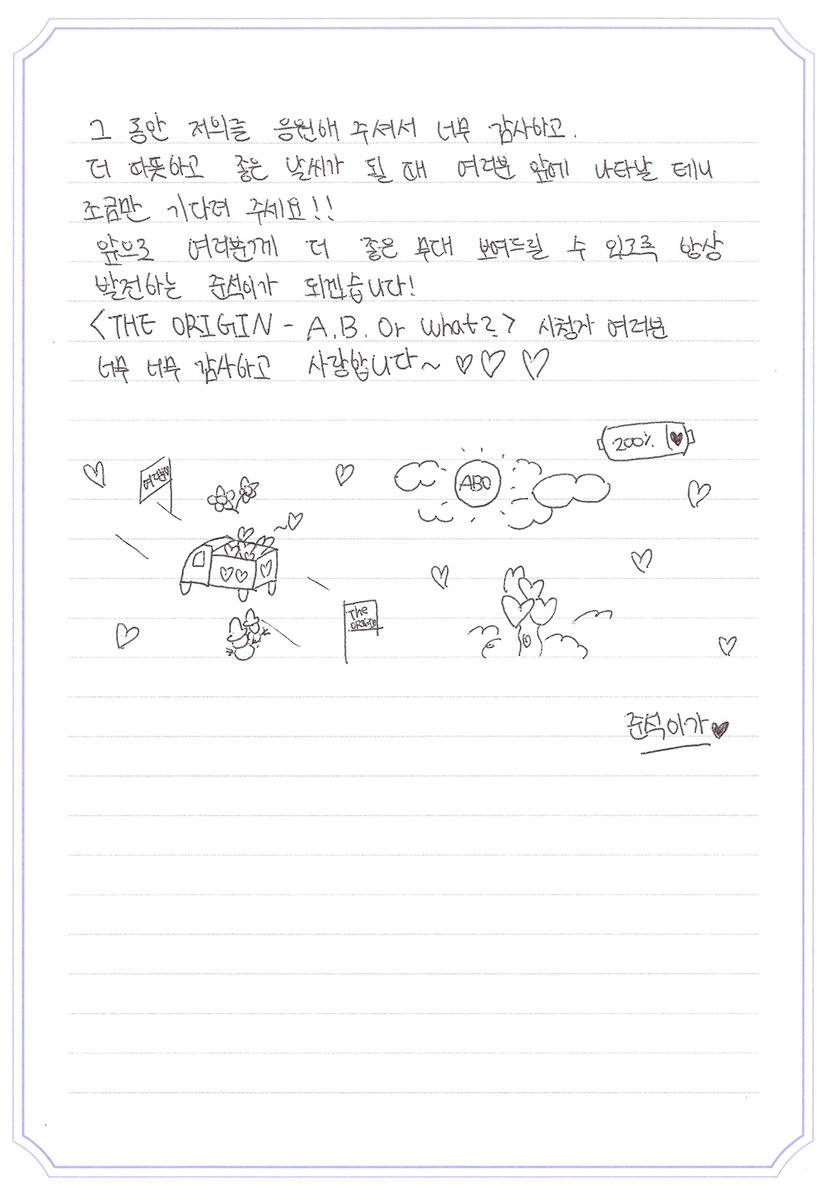 그 동안 저희를 응원해 주셔서 너무 감사하고.
더 따뜻하고 좋은 날씨가 될 때 여러분 앞에 나타날 테니
조금만 기다려 주세요!!
앞으로 여러분께 더 좋은 무대 보여드릴 수 있도록 항상
발전하는 준석이가 되겠습니다!
<THE ORIGIN - A.B. Or what?> 시청자 여러분
너무 너무 감사하고 사랑합니다~ ♡♡♡
200% ♥
여러분
ABO
The
ORIGIN
준석이가♥